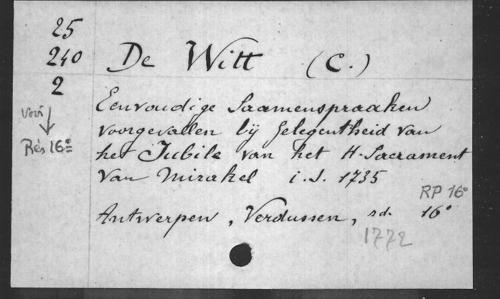 25
240
2
Voir
Rés 16º
De Witt (C.)
Eenvoudige Saamenspraaken
voorgevallen bij gelegentheid van
het Jubile van het H. Sacrament
van Mirakel i. J. 1735
RP 16º
Antwerpen, Verdussen, s.d. 16º
1772